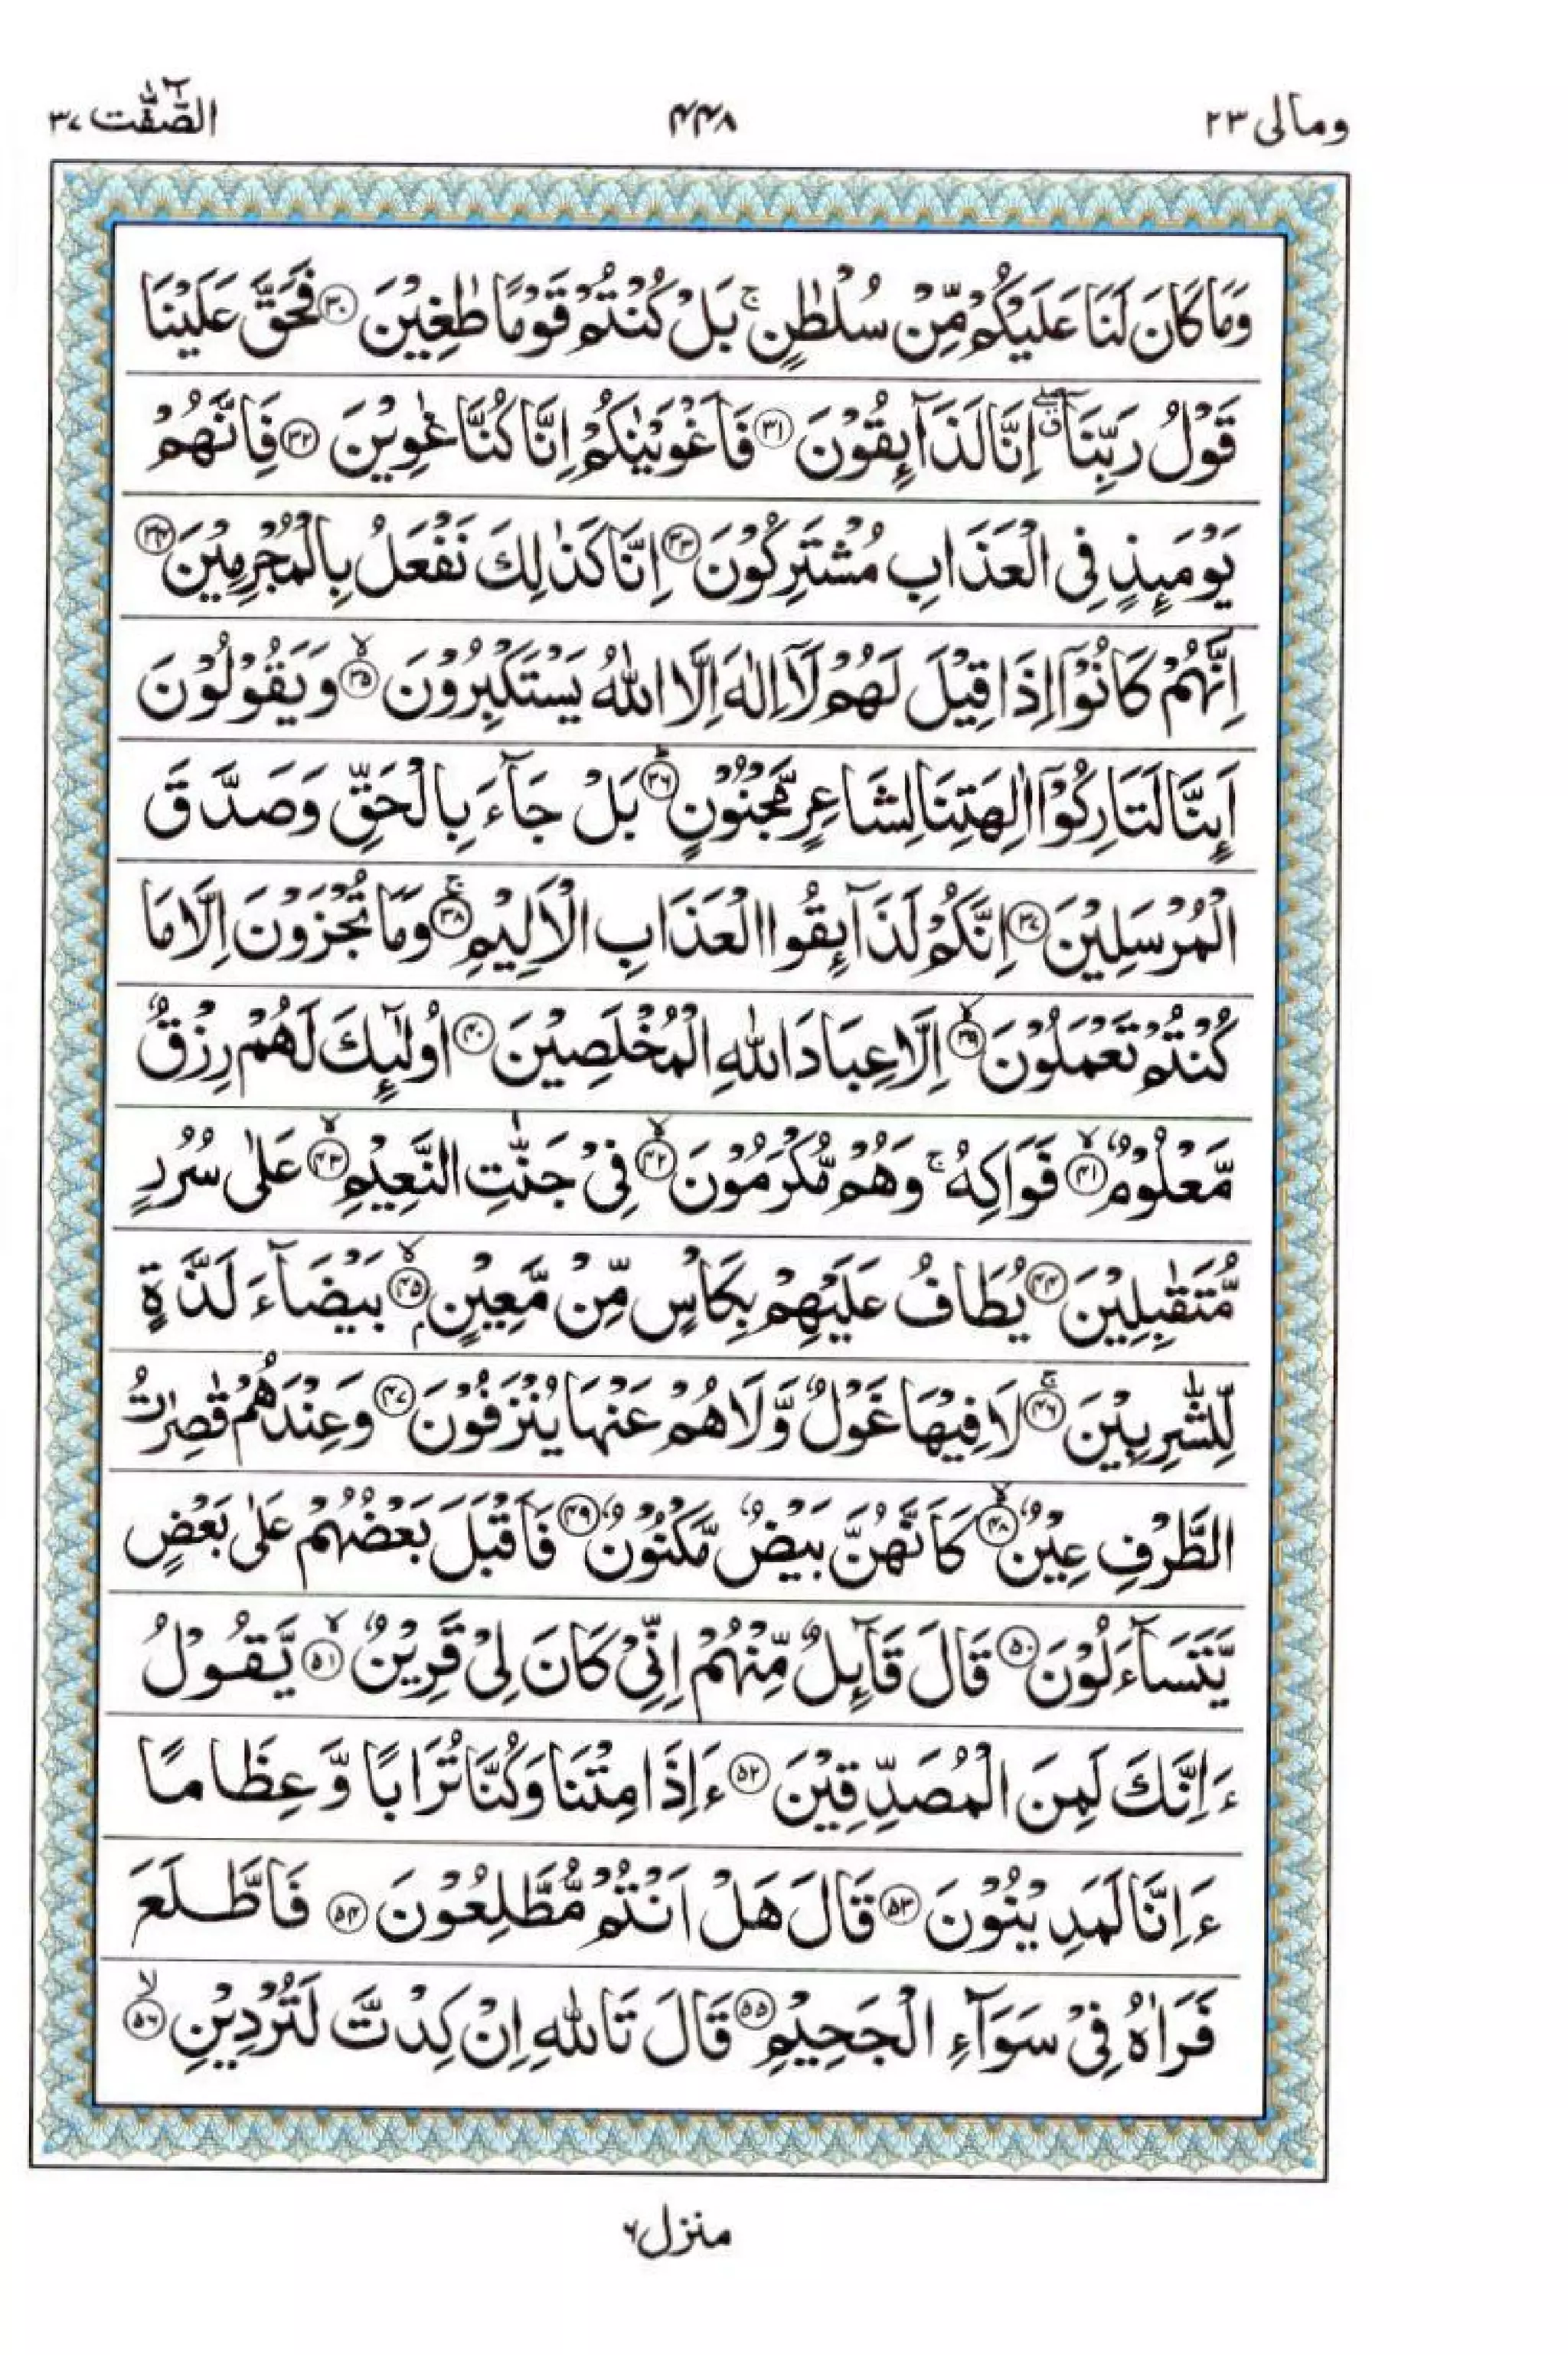 ومالی ٢٣ ۴۴۸ الصّٰٓفّٰت ٣٧
وَمَا كَانَ لَنَا عَلَيْكُمْ مِّنْ سُلْطٰنٍ ۚ بَلْ كُنْتُمْ قَوْمًا طٰغِيْنَ ۝۳۰ فَحَقَّ عَلَيْنَا
قَوْلُ رَبِّنَاۤ ۖۗ اِنَّا لَذَآئِقُوْنَ ۝۳۱ فَاَغْوَيْنٰكُمْ اِنَّا كُنَّا غٰوِيْنَ ۝۳۲ فَاِنَّهُمْ
يَوْمَئِذٍ فِى الْعَذَابِ مُشْتَرِكُوْنَ ۝۳۳ اِنَّا كَذٰلِكَ نَفْعَلُ بِالْمُجْرِمِيْنَ ۝۳۴
اِنَّهُمْ كَانُوْۤا اِذَا قِيْلَ لَهُمْ لَاۤ اِلٰهَ اِلَّا اللّٰهُ يَسْتَكْبِرُوْنَ ۝۳۵ۙ وَيَقُوْلُوْنَ
اَئِنَّا لَتَارِكُوْۤا اٰلِهَتِنَا لِشَاعِرٍ مَّجْنُوْنٍ ۝۳۶ؕ بَلْ جَآءَ بِالْحَقِّ وَصَدَّقَ
الْمُرْسَلِيْنَ ۝۳۷ اِنَّكُمْ لَذَآئِقُوا الْعَذَابِ الْاَلِيْمِ ۝۳۸ۚ وَمَا تُجْزَوْنَ اِلَّا مَا
كُنْتُمْ تَعْمَلُوْنَ ۝۳۹ۙ اِلَّا عِبَادَ اللّٰهِ الْمُخْلَصِيْنَ ۝۴۰ اُولٰٓئِكَ لَهُمْ رِزْقٌ
مَّعْلُوْمٌ ۝۴۱ۙ فَوَاكِهُ ۚ وَهُمْ مُّكْرَمُوْنَ ۝۴۲ۙ فِىْ جَنّٰتِ النَّعِيْمِ ۝۴۳ۙ عَلٰى سُرُرٍ
مُّتَقٰبِلِيْنَ ۝۴۴ يُطَافُ عَلَيْهِمْ بِكَاْسٍ مِّنْ مَّعِيْنٍۭ ۝۴۵ۙ بَيْضَآءَ لَذَّةٍ
لِّلشّٰرِبِيْنَ ۝۴۶ۚ لَا فِيْهَا غَوْلٌ وَّلَا هُمْ عَنْهَا يُنْزَفُوْنَ ۝۴۷ وَعِنْدَهُمْ قٰصِرٰتُ
الطَّرْفِ عِيْنٌ ۝۴۸ۙ كَاَنَّهُنَّ بَيْضٌ مَّكْنُوْنٌ ۝۴۹ فَاَقْبَلَ بَعْضُهُمْ عَلٰى بَعْضٍ
يَّتَسَآءَلُوْنَ ۝۵۰ قَالَ قَآئِلٌ مِّنْهُمْ اِنِّىْ كَانَ لِىْ قَرِيْنٌ ۝۵۱ۙ يَّقُوْلُ
ءَاِنَّكَ لَمِنَ الْمُصَدِّقِيْنَ ۝۵۲ ءَاِذَا مِتْنَا وَكُنَّا تُرَابًا وَّعِظَامًا
ءَاِنَّا لَمَدِيْنُوْنَ ۝۵۳ قَالَ هَلْ اَنْتُمْ مُّطَّلِعُوْنَ ۝۵۴ فَاطَّلَعَ
فَرَاٰهُ فِىْ سَوَآءِ الْجَحِيْمِ ۝۵۵ قَالَ تَاللّٰهِ اِنْ كِدْتَّ لَتُرْدِيْنِ ۝۵۶ۙ
منزل ۶